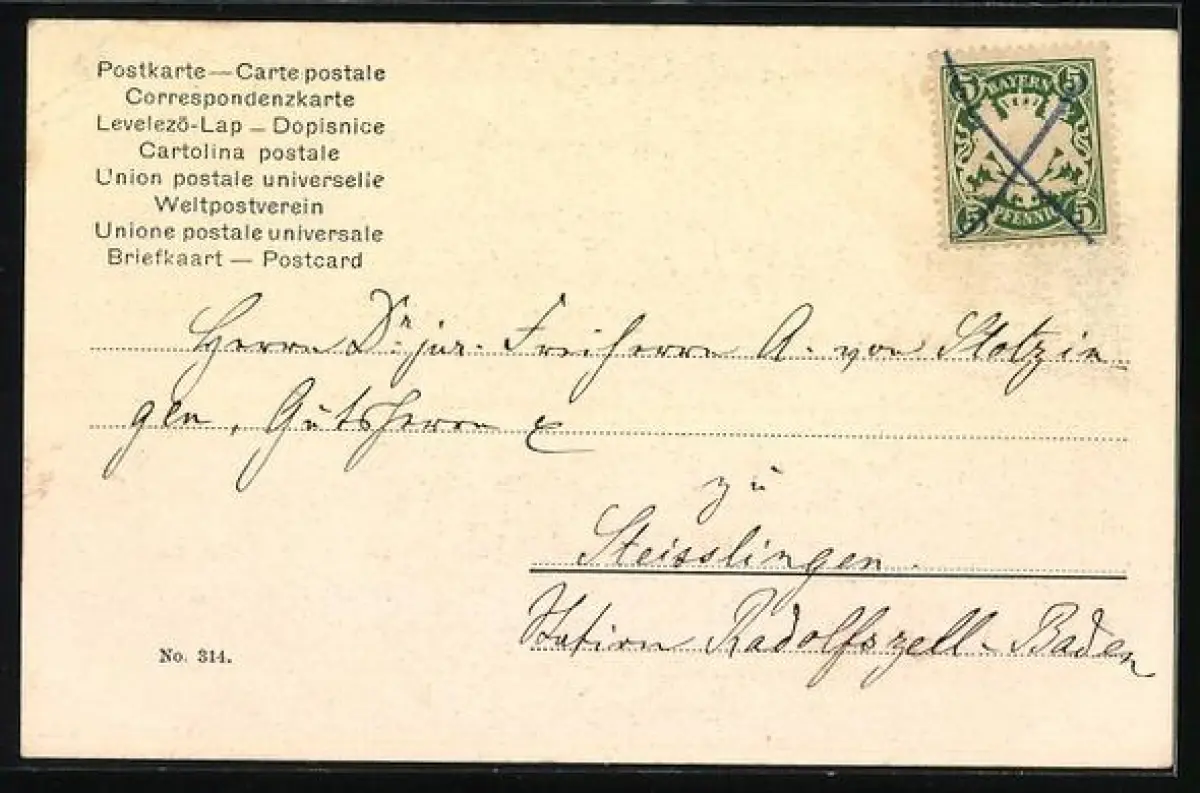 Postkarte — Carte postale
Correspondenzkarte
Levelező-Lap — Dopisnice
Cartolina postale
Union postale universelle
Weltpostverein
Unione postale universale
Briefkaart — Postcard
5 BAYERN 5
5 PFENNIG 5
Herrn Dr. jur. Freiherrn A. von Stotzin
gen, Gutsherrn
zu
Steisslingen.
Station Radolfszell - Baden
No. 314.